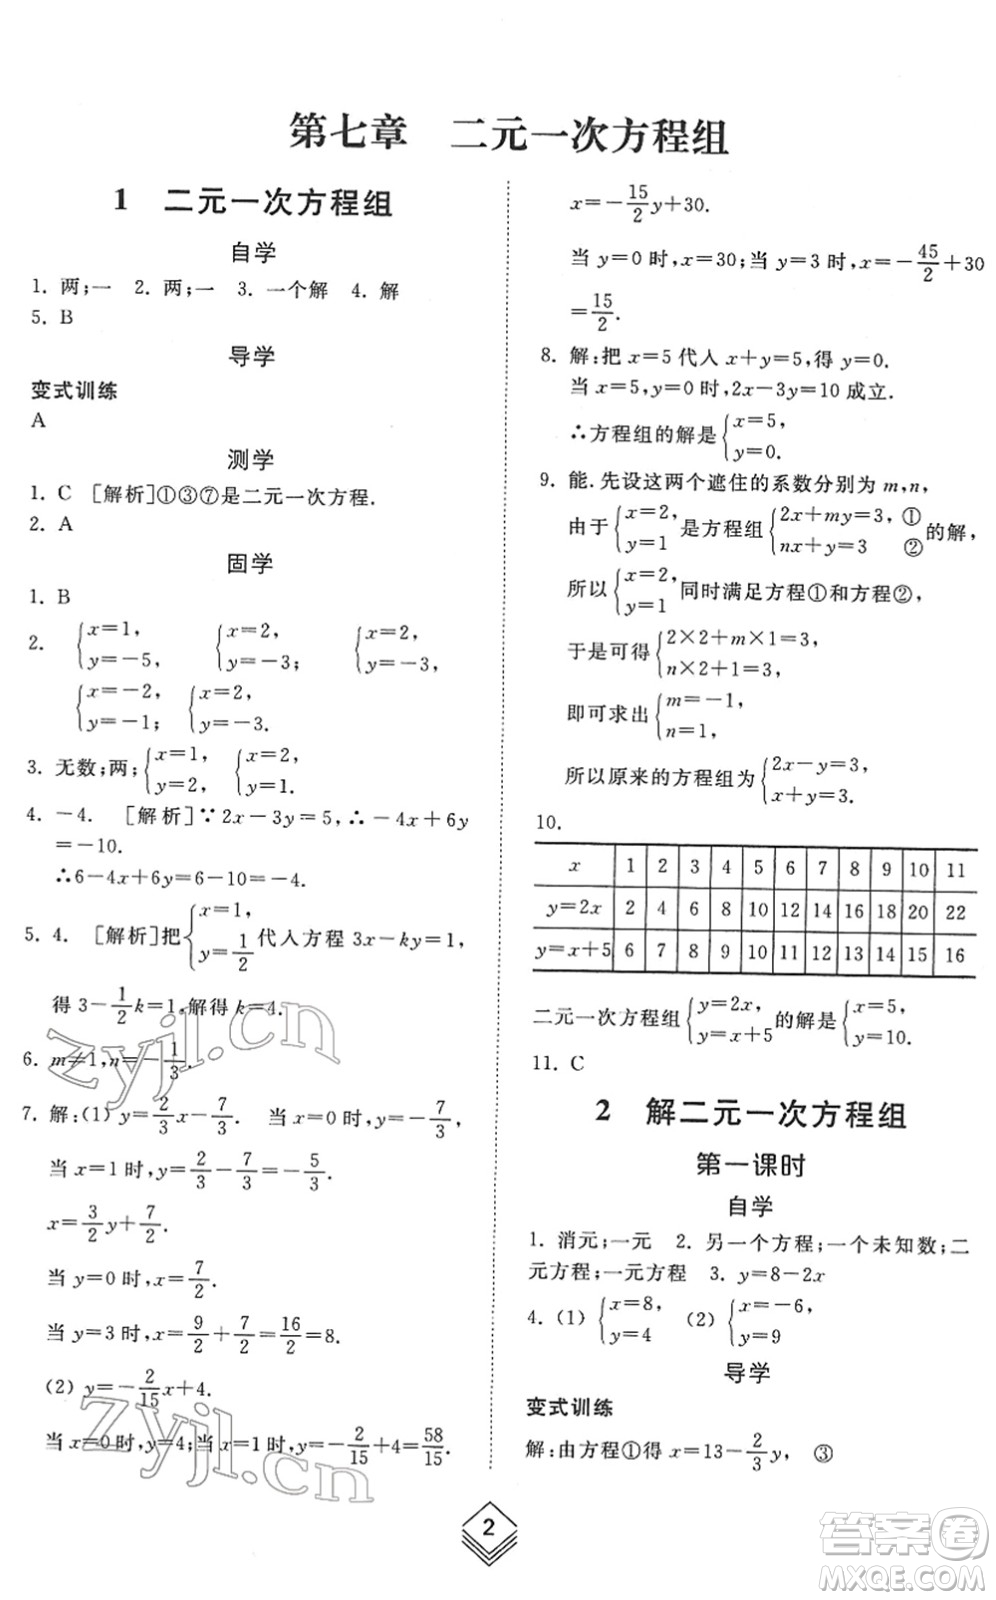 第七章 二元一次方程组
1 二元一次方程组
自学
1. 两;一 2. 两;一 3. 一个解 4. 解
5. B
导学
变式训练
A
测学
1. C [解析]①③⑦是二元一次方程.
2. A
固学
1. B
2. {x=1, y=-5, {x=2, y=-3; {x=2, y=-3,
{x=-2, y=-1; {x=2, y=-3.
3. 无数;两;{x=1, y=2, {x=2, y=1.
4. -4. [解析]∵2x-3y=5,∴-4x+6y
=-10.
∴6-4x+6y=6-10=-4.
5. 4. [解析]把{x=1, y=1/2 代入方程 3x-ky=1,
得 3-1/2k=1,解得 k=4.
6. m≠1,n=-1/3.
7. 解:(1) y=2/3x-7/3. 当 x=0 时,y=-7/3,
当 x=1 时,y=2/3-7/3=-5/3.
x=3/2y+7/2.
当 y=0 时,x=7/2.
当 y=3 时,x=9/2+7/2=16/2=8.
(2) y=-2/15x+4.
当 x=0 时,y=4;当 x=1 时,y=-2/15+4=58/15.
x=-15/2y+30.
当 y=0 时,x=30;当 y=3 时,x=-45/2+30
=15/2.
8. 解:把 x=5 代入 x+y=5,得 y=0.
当 x=5,y=0 时,2x-3y=10 成立.
∴方程组的解是{x=5, y=0.
9. 能.先设这两个遮住的系数分别为 m,n,
由于{x=2, y=1 是方程组{2x+my=3, ① nx+y=3 ② 的解,
所以{x=2, y=1 同时满足方程①和方程②,
于是可得{2×2+m×1=3, n×2+1=3,
即可求出{m=-1, n=1,
所以原来的方程组为{2x-y=3, x+y=3.
10.
x 1 2 3 4 5 6 7 8 9 10 11
y=2x 2 4 6 8 10 12 14 16 18 20 22
y=x+5 6 7 8 9 10 11 12 13 14 15 16
二元一次方程组{y=2x, y=x+5 的解是{x=5, y=10.
11. C
2 解二元一次方程组
第一课时
自学
1. 消元;一元 2. 另一个方程;一个未知数;二
元方程;一元方程 3. y=8-2x
4. (1) {x=8, y=4 (2) {x=-6, y=9
导学
变式训练
解:由方程①得 x=13-2/3y, ③
2
zyjl.cn
zyjl.cn
答案卷
MXQE.COM